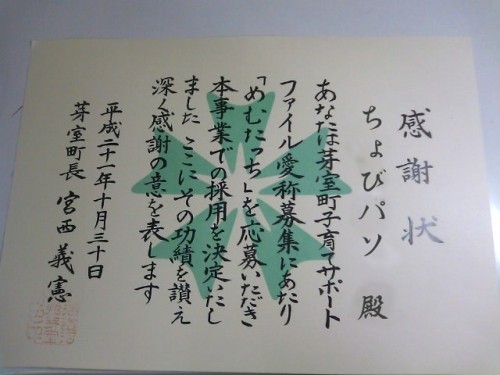 感謝状
ちょびパソ 殿
あなたは芽室町子育てサポート
ファイル愛称募集にあたり
「めむたっち」を応募いただき
本事業での採用を決定いたし
ました ここにその功績を讃え
深く感謝の意を表します
平成二十一年十月三十日
芽室町長 宮西義憲